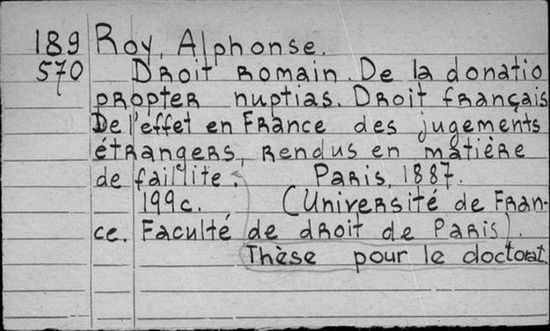 189 Roy, Alphonse.
570 Droit Romain. De la donatio
propter nuptias. Droit français
De l'effet en France des jugements
étrangers, rendus en matière
de faillite. Paris, 1887.
199c. (Université de Fran-
ce. Faculté de droit de Paris).
Thèse pour le doctorat.